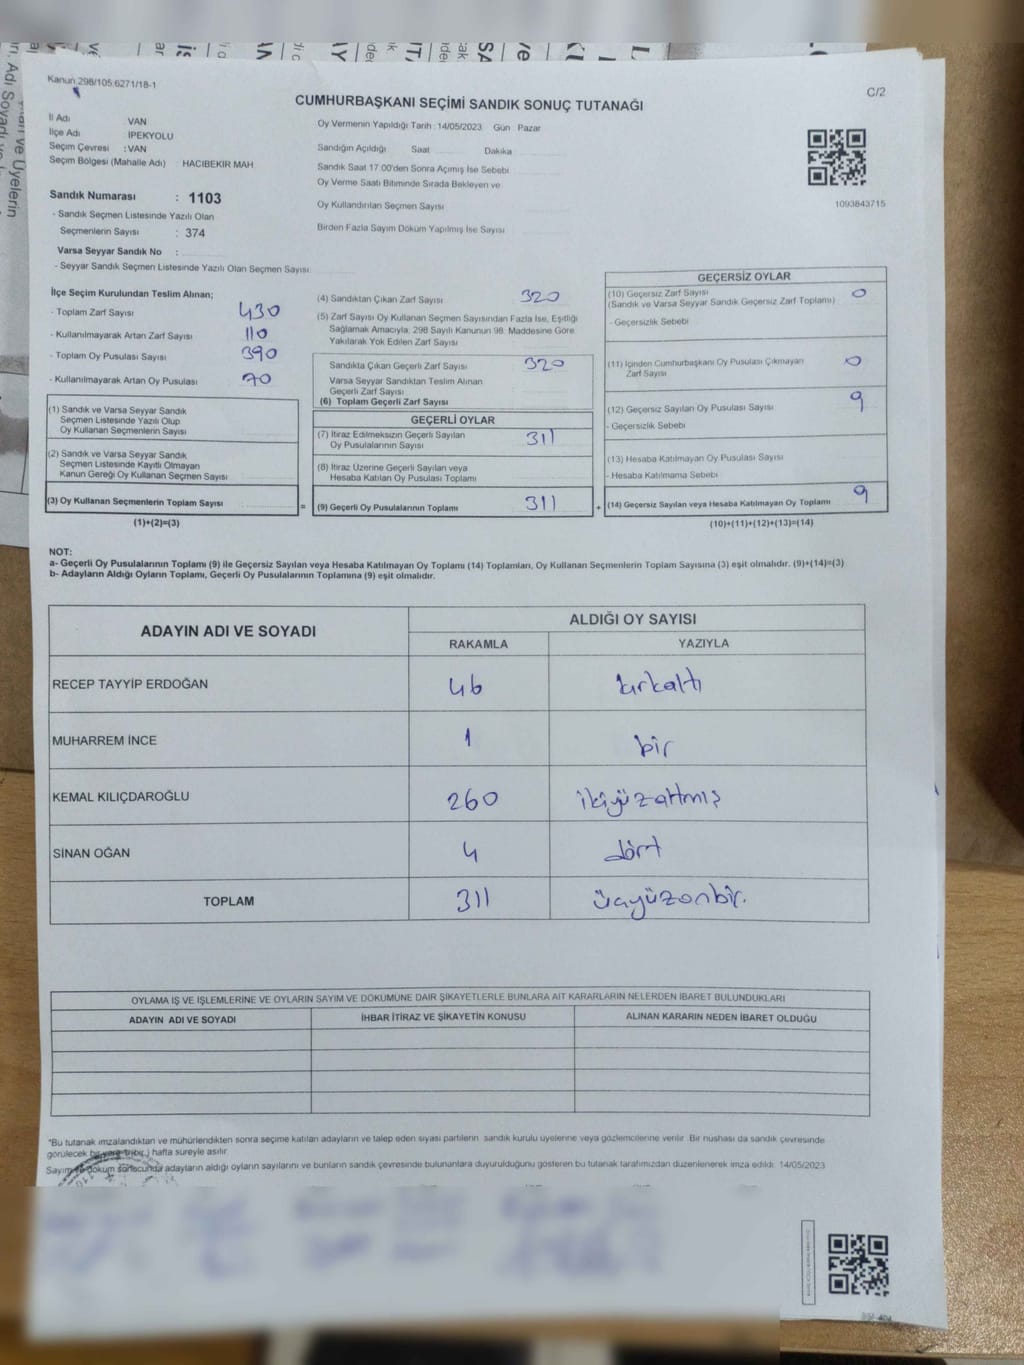 Kanun 298/105 6271/18-1
C/2
CUMHURBAŞKANI SEÇİMİ SANDIK SONUÇ TUTANAĞI
İl Adı VAN
İlçe Adı İPEKYOLU
Seçim Çevresi : VAN
Seçim Bölgesi (Mahalle Adı) : HACIBEKİR MAH
Sandık Numarası : 1103
- Sandık Seçmen Listesinde Yazılı Olan
Seçmenlerin Sayısı : 374
Varsa Seyyar Sandık No :
- Seyyar Sandık Seçmen Listesinde Yazılı Olan Seçmen Sayısı
Oy Vermenin Yapıldığı Tarih : 14/05/2023 Gün Pazar
Sandığın Açıldığı Saat Dakika
Sandık Saat 17.00'den Sonra Açımış İse Sebebi
Oy Verme Saati Bitiminde Sırada Bekleyen ve
Oy Kullandırılan Seçmen Sayısı
Birden Fazla Sayım Döküm Yapılmış İse Sayısı
1093843715
İlçe Seçim Kurulundan Teslim Alınan;
- Toplam Zarf Sayısı 430
- Kullanılmayarak Artan Zarf Sayısı 110
- Toplam Oy Pusulası Sayısı 390
- Kullanılmayarak Artan Oy Pusulası 70
(1) Sandık ve Varsa Seyyar Sandık
Seçmen Listesinde Yazılı Olup
Oy Kullanan Seçmenlerin Sayısı
(2) Sandık ve Varsa Seyyar Sandık
Seçmen Listesinde Kayıtlı Olmayan
Kanun Gereği Oy Kullanan Seçmen Sayısı
(3) Oy Kullanan Seçmenlerin Toplam Sayısı
(1)+(2)=(3)
(4) Sandıktan Çıkan Zarf Sayısı 320
(5) Zarf Sayısı Oy Kullanan Seçmen Sayısından Fazla İse, Eşitliği
Sağlamak Amacıyla, 298 Sayılı Kanunun 98. Maddesine Göre
Yakılarak Yok Edilen Zarf Sayısı
Sandıkta Çıkan Geçerli Zarf Sayısı 320
Varsa Seyyar Sandıktan Teslim Alınan
Geçerli Zarf Sayısı
(6) Toplam Geçerli Zarf Sayısı
GEÇERLİ OYLAR
(7) İtiraz Edilmeksizin Geçerli Sayılan
Oy Pusulalarının Sayısı 311
(8) İtiraz Üzerine Geçerli Sayılan veya
Hesaba Katılan Oy Pusulası Toplamı
= (9) Geçerli Oy Pusulalarının Toplamı 311 +
GEÇERSİZ OYLAR
(10) Geçersiz Zarf Sayısı 0
(Sandık ve Varsa Seyyar Sandık Geçersiz Zarf Toplamı)
- Geçersizlik Sebebi
(11) İçinden Cumhurbaşkanı Oy Pusulası Çıkmayan 0
Zarf Sayısı
(12) Geçersiz Sayılan Oy Pusulası Sayısı 9
- Geçersizlik Sebebi
(13) Hesaba Katılmayan Oy Pusulası Sayısı
- Hesaba Katılmama Sebebi
(14) Geçersiz Sayılan veya Hesaba Katılmayan Oy Toplamı 9
(10)+(11)+(12)+(13)=(14)
NOT:
a- Geçerli Oy Pusulalarının Toplamı (9) ile Geçersiz Sayılan veya Hesaba Katılmayan Oy Toplamı (14) Toplamları, Oy Kullanan Seçmenlerin Toplam Sayısına (3) eşit olmalıdır. (9)+(14)=(3)
b- Adayların Aldığı Oyların Toplamı, Geçerli Oy Pusulalarının Toplamına (9) eşit olmalıdır.
ADAYIN ADI VE SOYADI
ALDIĞI OY SAYISI
RAKAMLA YAZIYLA
RECEP TAYYİP ERDOĞAN 46 kırkaltı
MUHARREM İNCE 1 bir
KEMAL KILIÇDAROĞLU 260 ikiyüzaltmış
SİNAN OĞAN 4 dört
TOPLAM 311 üçyüzonbir.
OYLAMA İŞ VE İŞLEMLERİNE VE OYLARIN SAYIM VE DÖKÜMÜNE DAİR ŞİKAYETLERLE BUNLARA AİT KARARLARIN NELERDEN İBARET BULUNDUKLARI
ADAYIN ADI VE SOYADI İHBAR İTİRAZ VE ŞİKAYETİN KONUSU ALINAN KARARIN NEDEN İBARET OLDUĞU
*Bu tutanak imzalandıktan ve mühürlendikten sonra seçime katılan adayların ve talep eden siyasi partilerin sandık kurulu üyelerine veya gözlemcilerine verilir. Bir nüshası da sandık çevresinde
görülecek bir yere (bir) hafta süreyle asılır
Sayım ve döküm sonucunda adayların aldığı oyların sayılarını ve bunların sandık çevresinde bulunanlara duyurulduğunu gösteren bu tutanak tarafımızdan düzenlenerek imza edildi. 14/05/2023